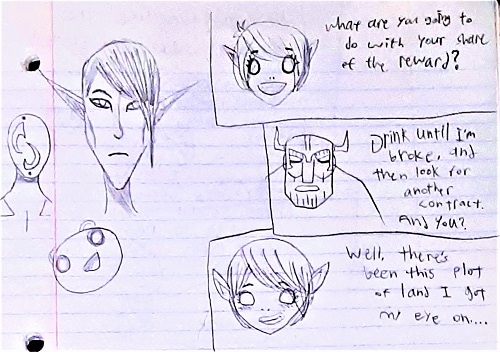 what are you going to
do with your share
of the reward?
Drink until I'm
broke, and
then look for
another
contract.
And you?
Well, there's
been this plot
of land I got
my eye on....